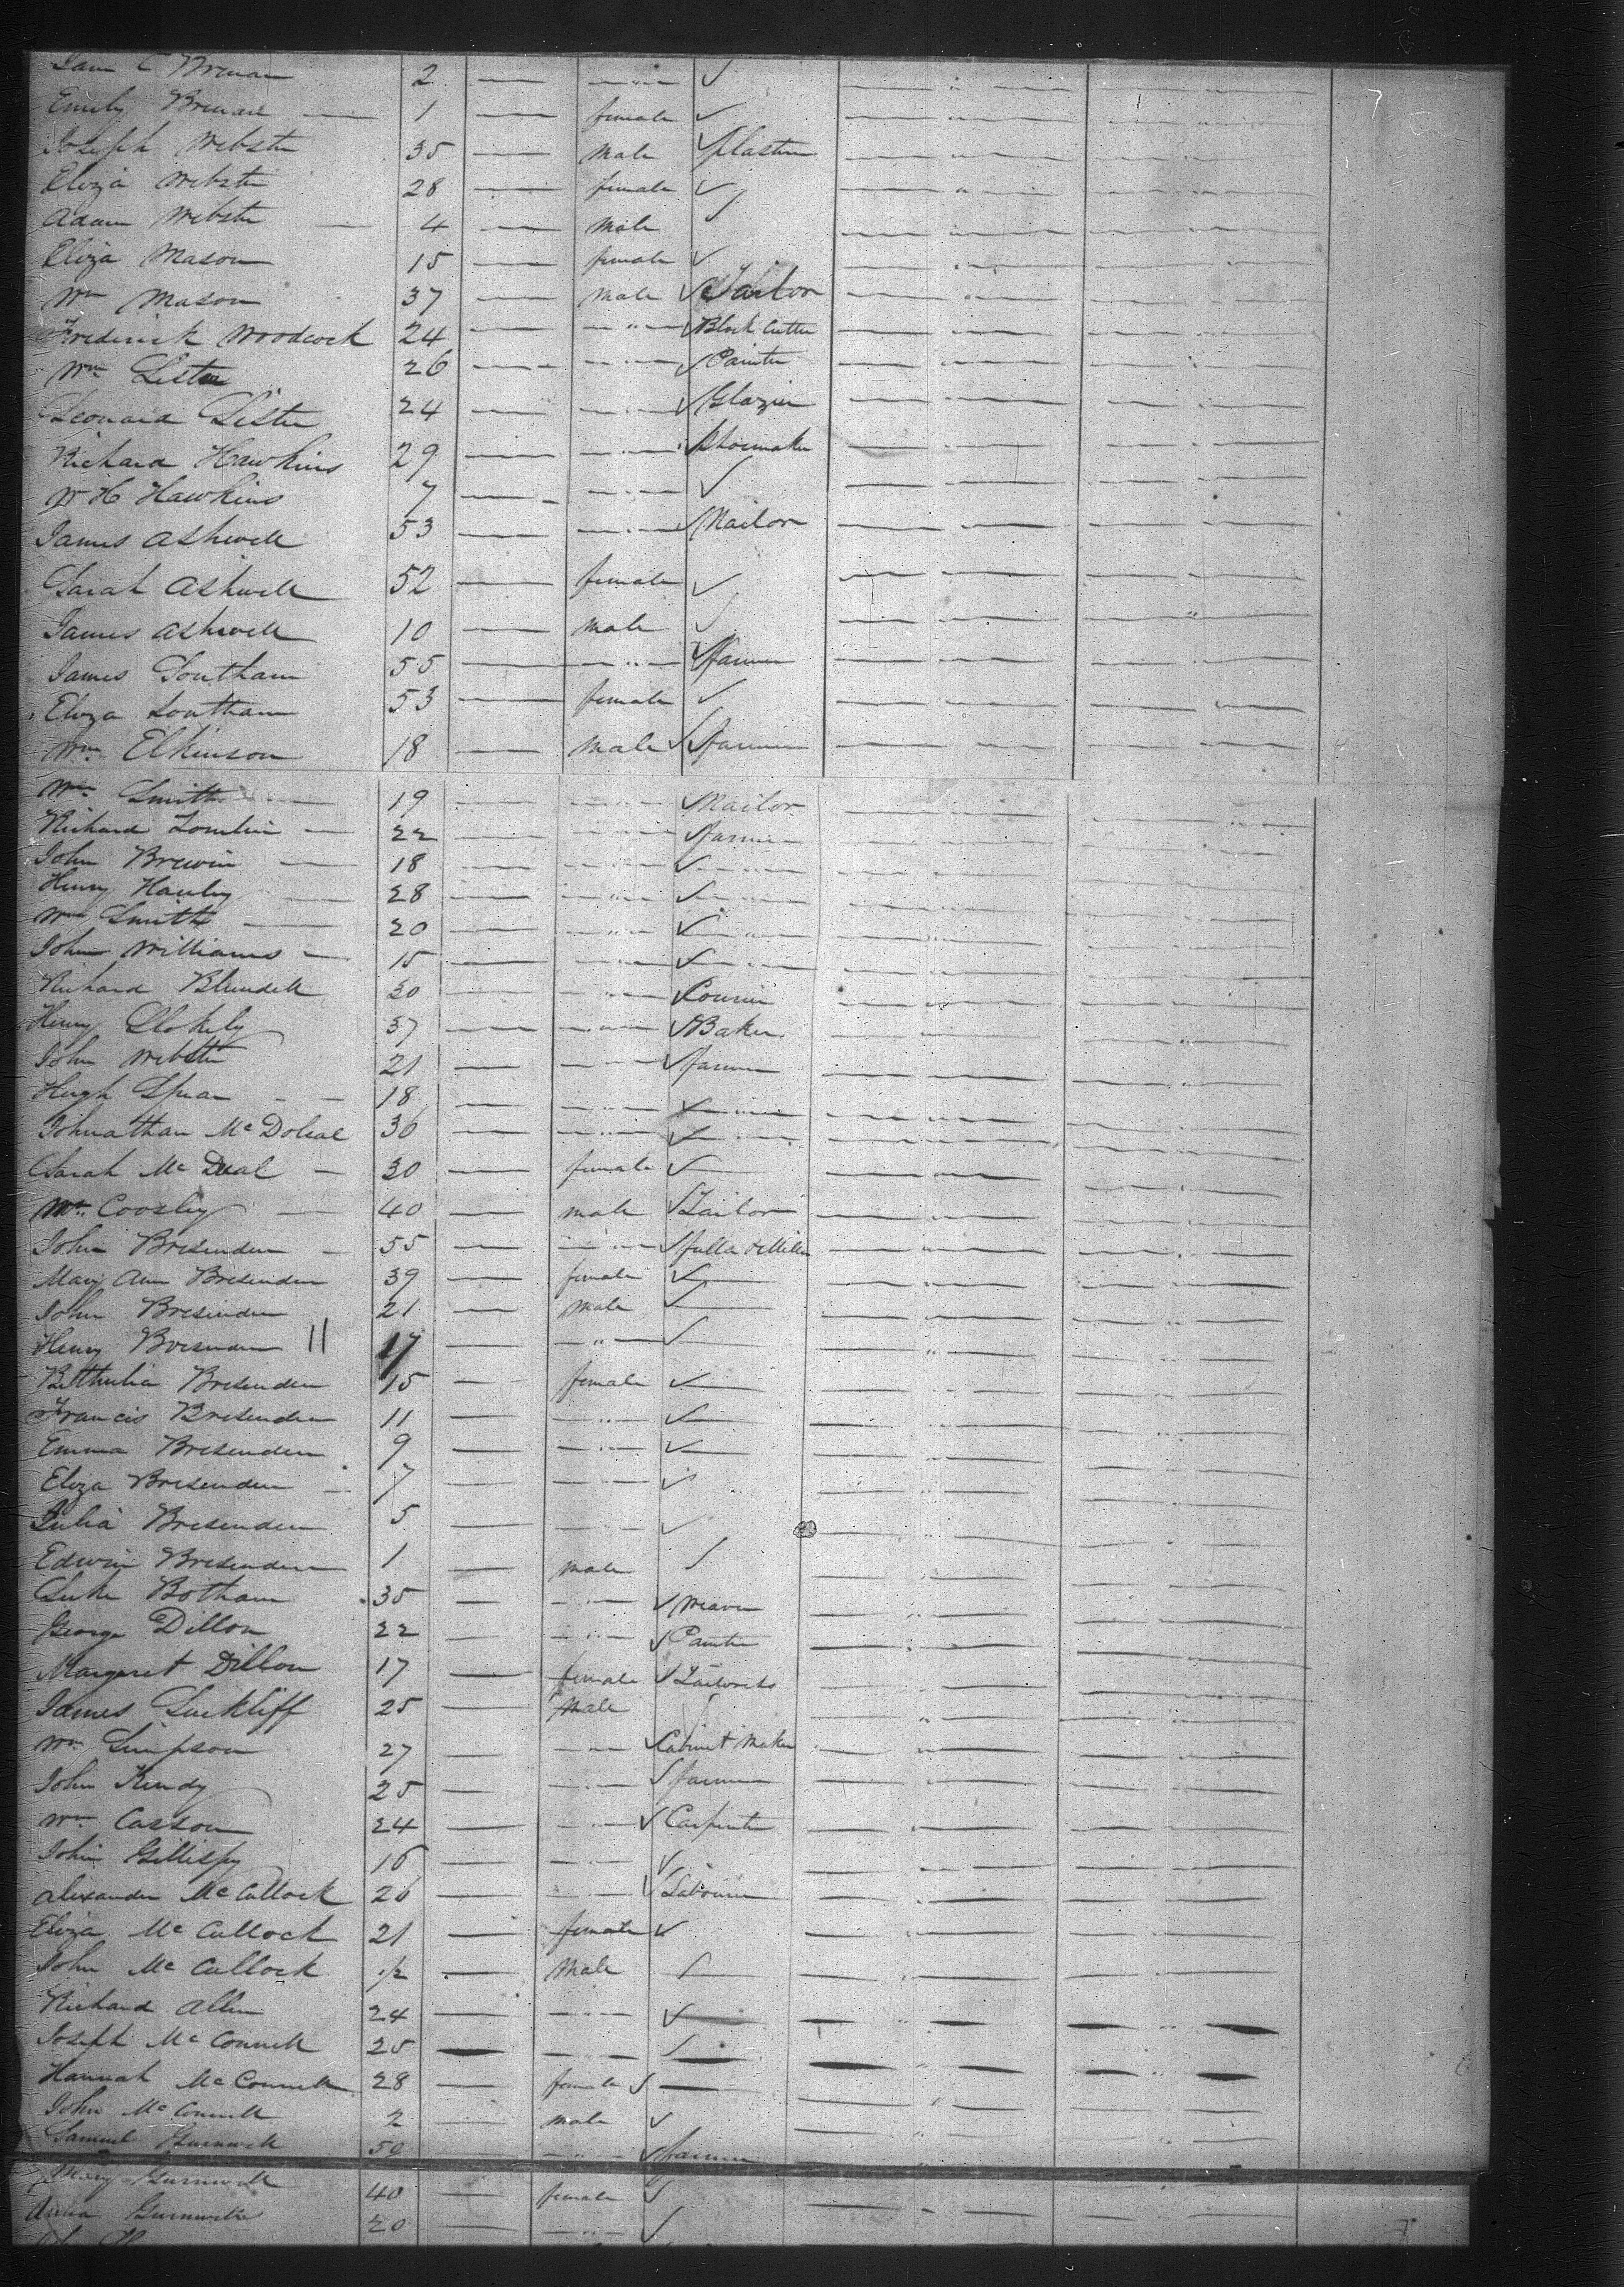 Brenan 2 — — " — ✓ — " — — " —
Emily Brenan — 1 — female ✓ — " — — " —
Joseph Webster 35 — male ✓ plaster — " — — " —
Eliza Webster 28 — female ✓ — " — — " —
Adam Webster — 4 — male ✓ — " — — " —
Eliza Mason 15 — female ✓ — " — — " —
Wm Mason 37 — male ✓ Tailor — " — — " —
Frederick Woodcock 24 — — " — ✓ Block Cutter — " — — " —
Wm Lister 26 — — " — ✓ Painter — " — — " —
Leonard Lister 24 — — " — ✓ Glazier — " — — " —
Richard Hawkins 29 — — " — Shoemaker — " — — " —
W H Hawkins 7 — — " — ✓ — " — — " —
James Ashwell 53 — — " — ✓ Nailor — " — — " —
Sarah Ashwell 52 — female ✓ — " — — " —
James Ashwell 10 — male ✓ — " — — " —
James Southam 55 — — " — ✓ farmer — " — — " —
Eliza Southam 53 — female ✓ — " — — " —
Wm Elkinson 18 — male ✓ farmer — " — — " —
Wm Smith — 19 — — " — ✓ Nailor — " — — " —
Richard Tomlin — 22 — — " — ✓ farmer — " — — " —
John Brewin — 18 — — " — ✓ — " — — " — — " —
Henry Hanley — 28 — — " — ✓ — " — — " — — " —
Wm Smith — 20 — — " — ✓ — " — — " — — " —
John Williams — 15 — — " — ✓ — " — — " — — " —
Richard Blundell 30 — — " — ✓ — " — — " —
Henry 37 — — " — ✓ Baker — " — — " —
John Webster 21 — — " — ✓ farmer — " — — " —
Hugh — — 18 — — " — ✓ — " — — " — — " —
Johnathan Mc 36 — — " — ✓ — " — — " — — " —
Sarah Mc — 30 — female ✓ — — " — — " —
Wm Coosley — 40 — male ✓ Tailor — " — — " —
John Bresenden — 55 — — " — ✓ — " — — " —
Mary Ann Bresenden 39 — female ✓ — — " — — " —
John Bresenden 21 — male ✓ — — " — — " —
Henry Bresenden 11 17 — — " — ✓ — — " — — " —
Bethulia Bresenden 15 — female ✓ — — " — — " —
Francis Bresenden 11 — — " — ✓ — — " — — " —
Emma Bresenden 9 — — " — ✓ — — " — — " —
Eliza Bresenden — 7 — — " — ✓ — " — — " —
Julia Bresenden 5 — — " — ✓ — " — — " —
Edwin Bresenden 1 — male ✓ — " — — " —
Luke Botham 35 — — " — ✓ Weaver — " — — " —
George Dillon 22 — — " — ✓ Painter — " — — " —
Margaret Dillon 17 — female ✓ Tailoress — " — — " —
James Suckliff 25 — male ✓ — " — — " —
Wm Simpson 27 — — " — ✓ Cabinet Maker — " — — " —
John Kendy 25 — — " — ✓ farmer — " — — " —
Wm Casson 24 — — " — ✓ Carpenter — " — — " —
John Gillispy 16 — — " — ✓ — " — — " —
Alexander Mc Cullock 26 — — " — ✓ Labourer — " — — " —
Eliza Mc Cullock 21 — female ✓ — " — — " —
John Mc Cullock 1/2 — male ✓ — — " — — " —
Richard Allen 24 — — " — ✓ — — " — — " —
Joseph Mc Connell 25 — — " — ✓ — — " — — " —
Hannah Mc Connell 28 — female ✓ — — " — — " —
John Mc Connell 2 — male ✓ — " — — " —
Samuel Gurnwell 50 — — " — ✓ farmer — " — — " —
Mary Gurnwell 40 — female ✓ — " — — " —
Anna Gurnwell 20 — — " — ✓ — " — — " —